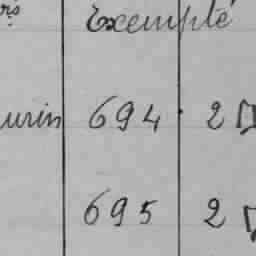 rs Exempté
urin 694 2
695 2